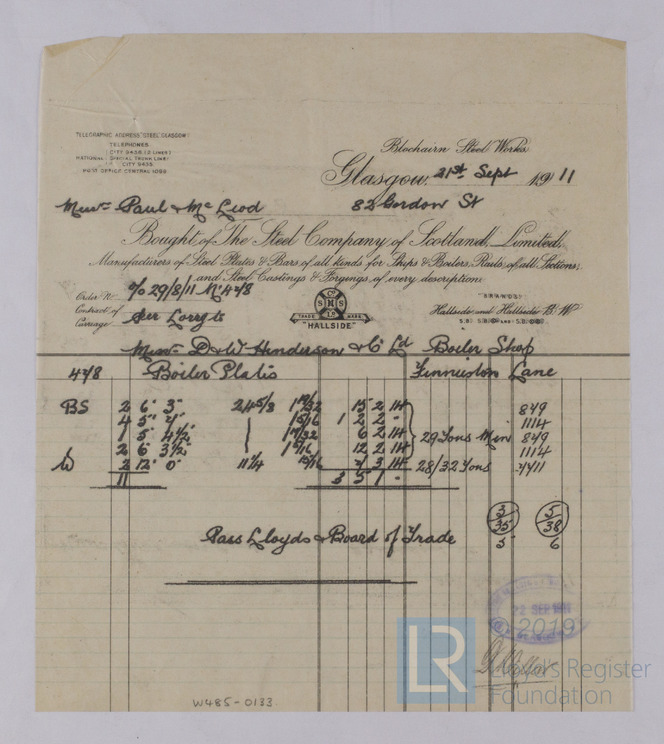 TELEGRAPHIC ADDRESS "STEEL, GLASGOW"
TELEPHONES
CITY 9436 (2 LINES)
NATIONAL SPECIAL TRUNK LINE
CITY 9455
POST OFFICE CENTRAL 1099
Blochairn Steel Works
Glasgow, 21st Sept 1911
Messrs Paul & McLeod 82 Gordon St
Bought of The Steel Company of Scotland, Limited,
Manufacturers of Steel Plates & Bars of all kinds for Ships & Boilers, Rails of all Sections,
and Steel Castings & Forgings of every description.
Order No o/o 29/8/11 No 478
Contract of
Carriage per Lorry to
SCoS HS
TRADE MARK
"HALLSIDE"
BRANDS
Hallside and Hallside B. W
Messrs D & W Henderson & Co Ld Boiler Shop
478 Boiler Plates Finnieston Lane
BS 2 6' 3" 24 5/8 1 19/32 15 2 14 849
4 5" 1 15/16 1 2 2 - 1114
1 5' 4 1/2" 1 19/32 6 2 14 29 Tons Min 849
2 6' 3 1/2" 1 15/16 12 2 14 1114
W 2 12' 0" 11 1/4 15/16 7 3 14 28/32 Tons 4411
11 3 5 1 -
3/35 5/38
5 6
Pass Lloyds & Board of Trade
22 SEP 1911
© 2019
LR Lloyd's Register
Foundation
W485-0133